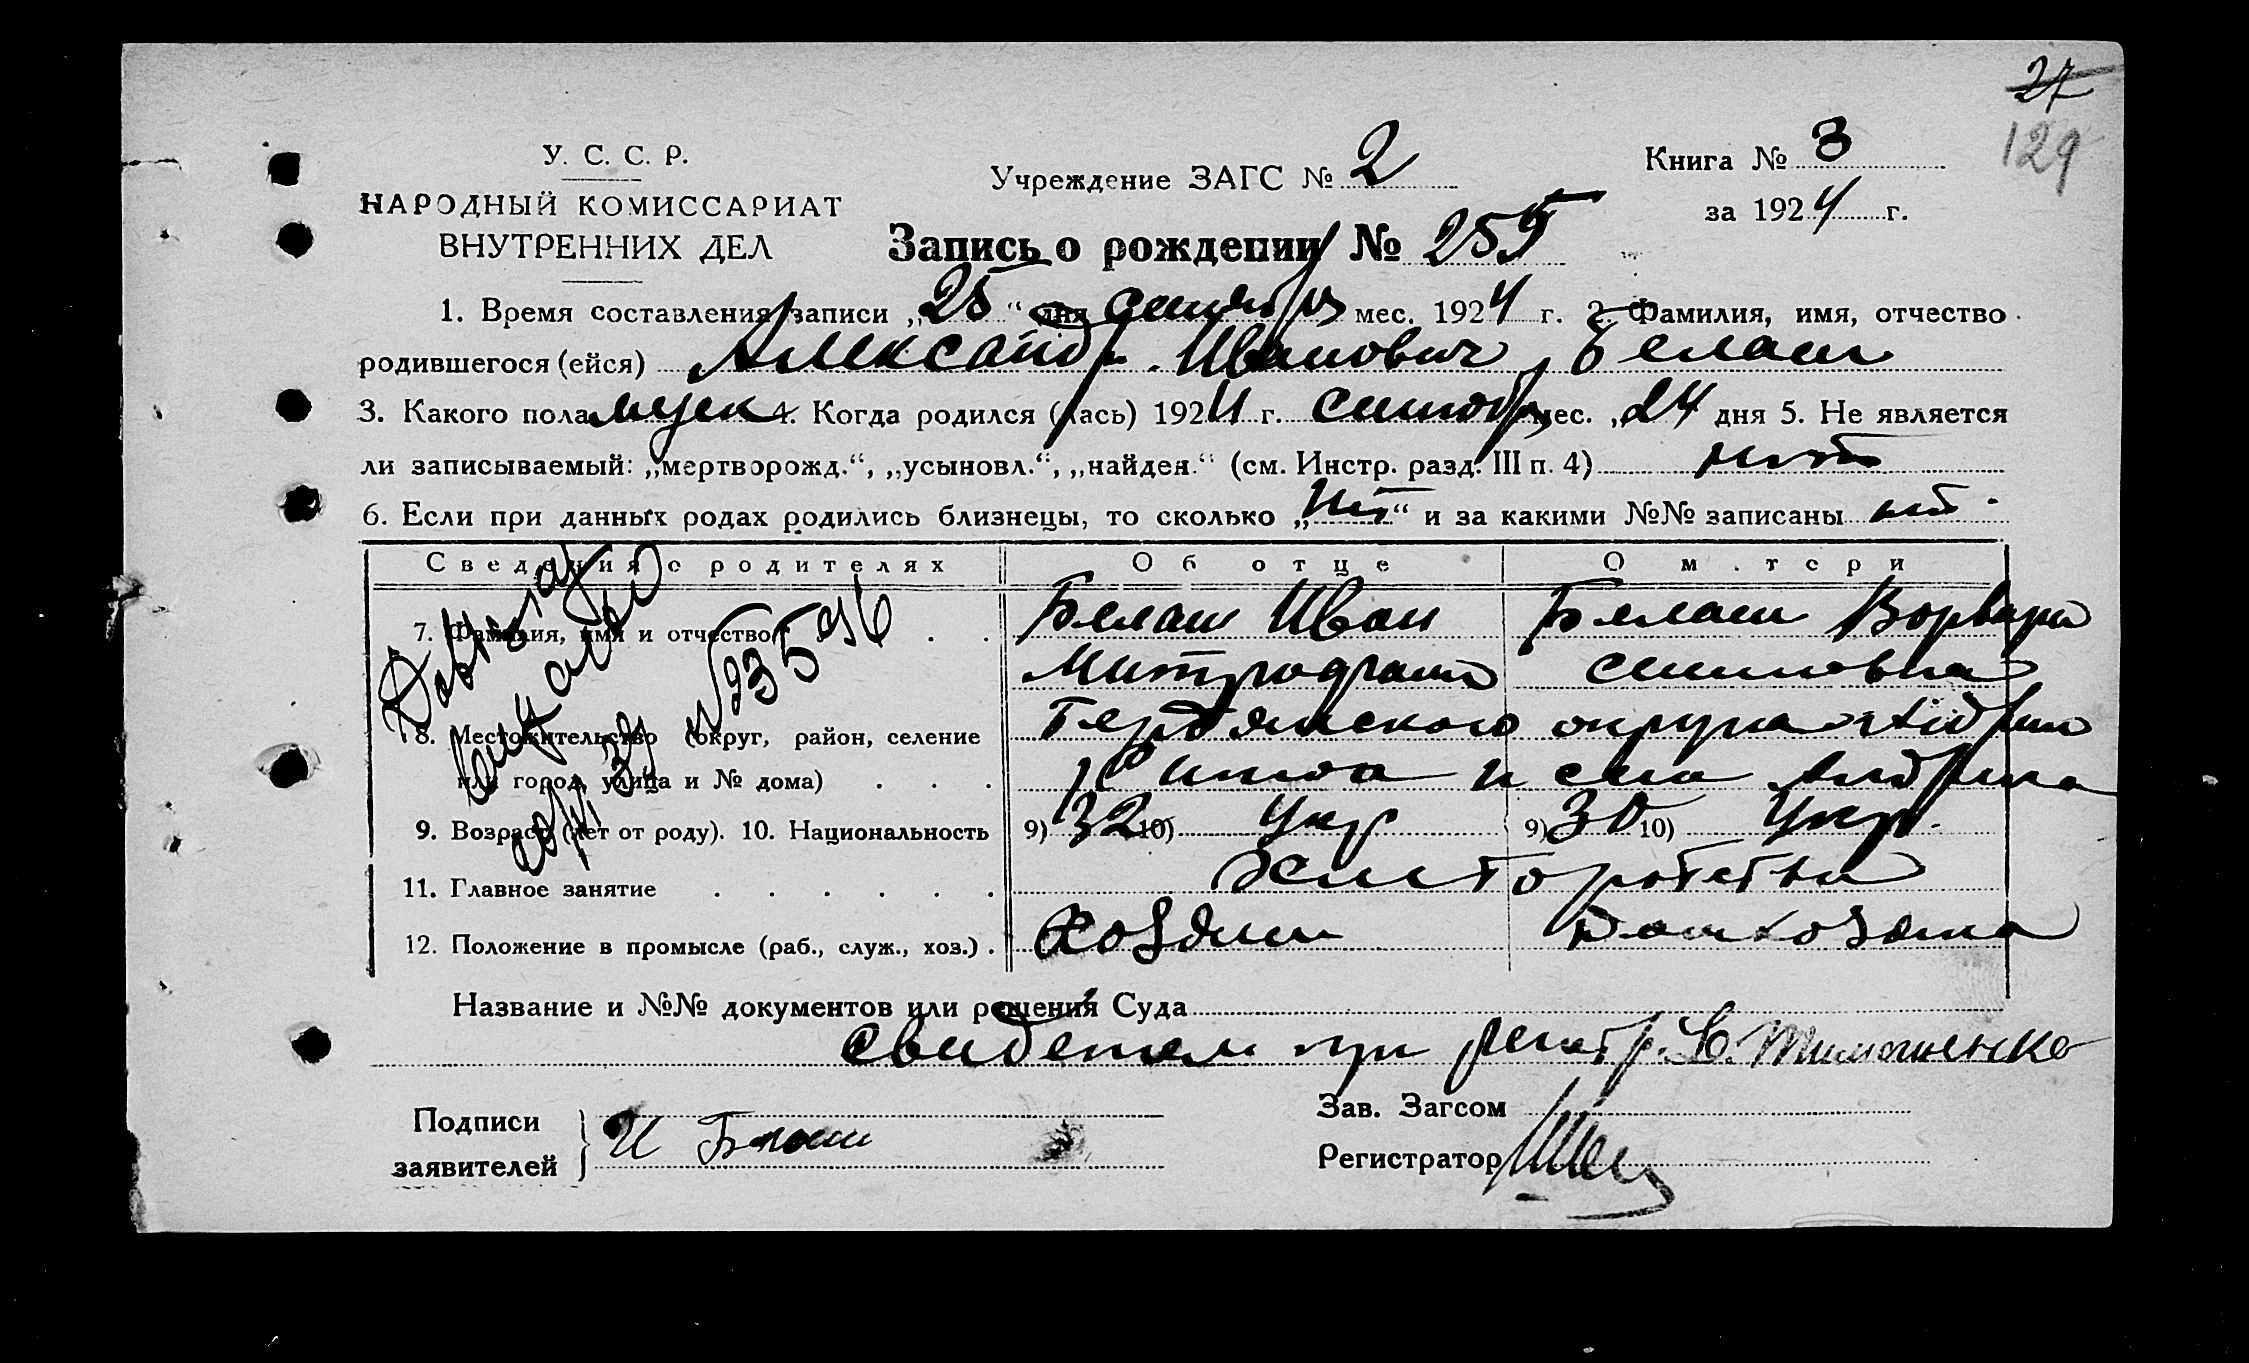 27
129
У. С. С. Р.
НАРОДНЫЙ КОМИССАРИАТ
ВНУТРЕННИХ ДЕЛ
Учреждение ЗАГС № 2
Книга № 3
за 1924 г.
Запись о рождении № 255
1. Время составления записи „25“ дня сентября мес. 1924 г. 2. Фамилия, имя, отчество
родившегося (ейся) Александр Иванович Белаш
3. Какого пола муж 4. Когда родился (лась) 1924 г. сентября мес. „24 дня 5. Не является
ли записываемый: „мертворожд.“, „усыновл.“, „найден.“ (см. Инстр. разд. III п. 4) нет
6. Если при данных родах родились близнецы, то сколько „нет“ и за какими №№ записаны нет
Сведения о родителях Об отце О матери
7. Фамилия, имя и отчество Белаш Иван Белаш Варвара
Митрофанов Семеновна
8. Местожительство (округ, район, селение Бердянского округа
или город, улица и № дома) района и села
9. Возраст (лет от роду). 10. Национальность 9) 32 10) Укр 9) 30 10) Укр.
11. Главное занятие
12. Положение в промысле (раб., служ., хоз.) Хозяин Домхозяйка
Название и №№ документов или решения Суда
свидетели при регистр. Тимошенко
Подписи
заявителей } И Белаш
Зав. Загсом
Регистратор